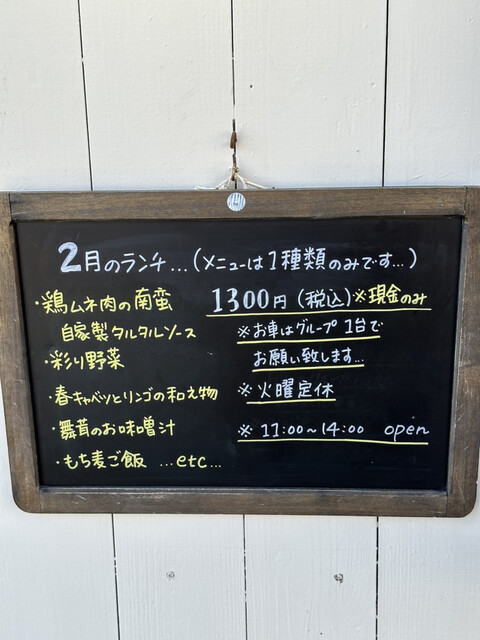 2月のランチ...(メニューは1種類のみです...)
・鶏ムネ肉の南蛮 1300円(税込)※現金のみ
自家製タルタルソース ※お車はグループ1台で
・彩り野菜 お願い致します...
・春キャベツとリンゴの和え物 ※火曜定休
・舞茸のお味噌汁 ※11:00~14:00 open
・もち麦ご飯 ...etc...